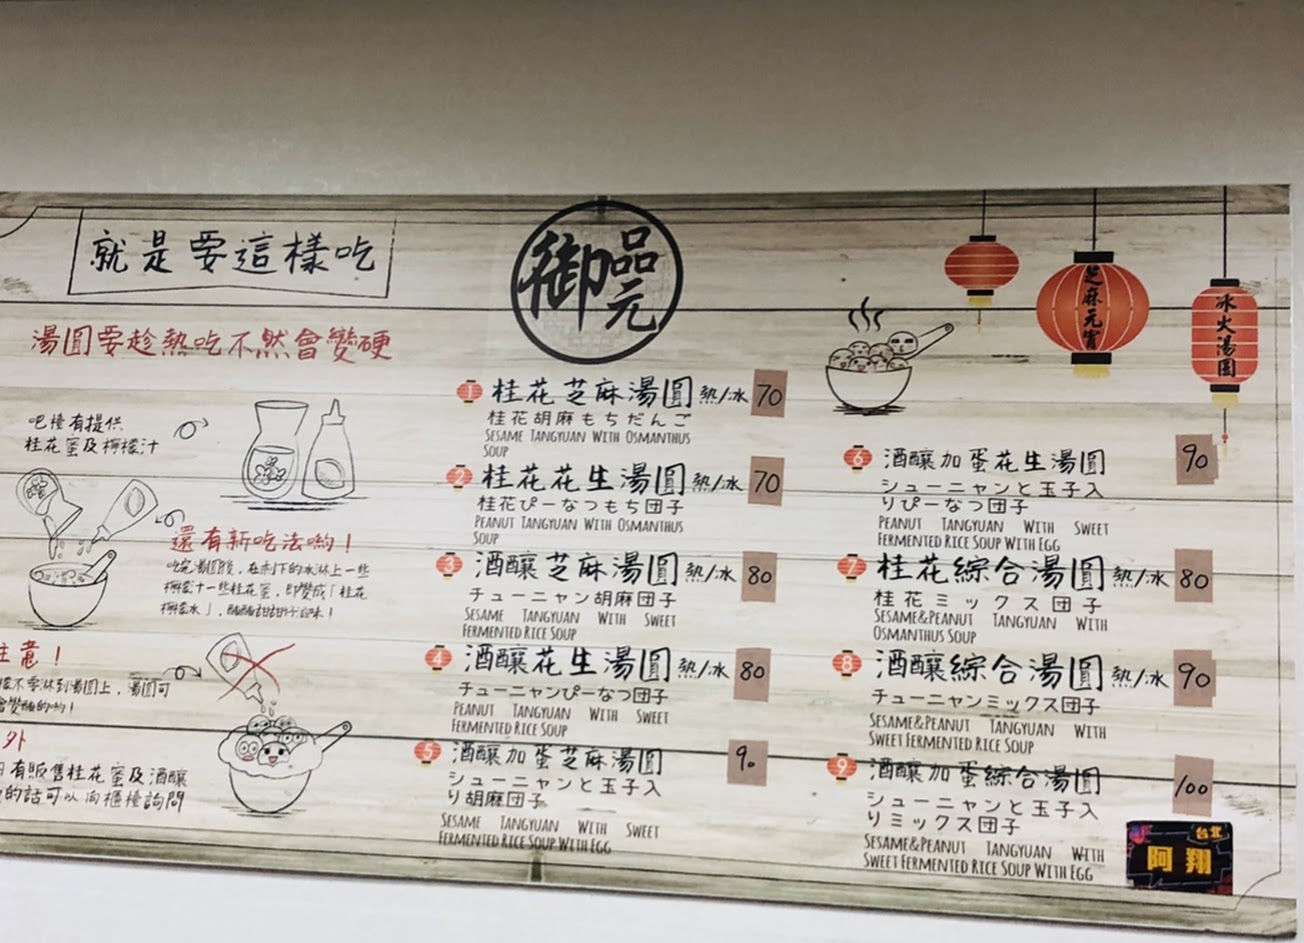 就是要這樣吃
湯圓要趁熱吃不然會變硬
吧檯有提供
桂花蜜及檸檬汁
還有新吃法喲!
吃完湯圓後,在剩下的冰淋上一些
檸檬汁+一些桂花蜜,即變成「桂花
檸檬冰」,酸酸甜甜好滋味!
注意!
檬不要淋到湯圓上,湯圓可
會變酸的喲!
外
有販售桂花蜜及酒釀
的話可以向櫃檯詢問
御品元
1 桂花芝麻湯圓 熱/冰 70
桂花胡麻もちだんご
SESAME TANGYUAN WITH OSMANTHUS
SOUP
2 桂花花生湯圓 熱/冰 70
桂花ぴーなつもち団子
PEANUT TANGYUAN WITH OSMANTHUS
SOUP
3 酒釀芝麻湯圓 熱/冰 80
チューニャン胡麻団子
SESAME TANGYUAN WITH SWEET
FERMENTED RICE SOUP
4 酒釀花生湯圓 熱/冰 80
チューニャンぴーなつ団子
PEANUT TANGYUAN WITH SWEET
FERMENTED RICE SOUP
5 酒釀加蛋芝麻湯圓 90
シューニャンと玉子入
り胡麻団子
SESAME TANGYUAN WITH SWEET
FERMENTED RICE SOUP WITH EGG
芝麻元寶
冰火湯圓
6 酒釀加蛋花生湯圓 90
シューニャンと玉子入
りぴーなつ団子
PEANUT TANGYUAN WITH SWEET
FERMENTED RICE SOUP WITH EGG
7 桂花綜合湯圓 熱/冰 80
桂花ミックス団子
SESAME&PEANUT TANGYUAN WITH
OSMANTHUS SOUP
8 酒釀綜合湯圓 熱/冰 90
チューニャンミックス団子
SESAME&PEANUT TANGYUAN WITH
SWEET FERMENTED RICE SOUP
9 酒釀加蛋綜合湯圓 100
シューニャンと玉子入
りミックス団子
SESAME&PEANUT TANGYUAN WITH
SWEET FERMENTED RICE SOUP WITH EGG
台北
阿翔